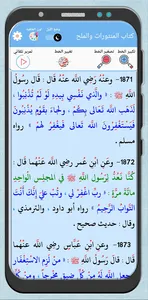 كتاب المنثورات والملح
تكبير الخط
تصغير الخط
تغيير الخط
تمرير تلقائي
1871- وعنهُ رَضِيَ اللَّه عَنْهُ قال : قال رَسُولُ
اللَّه ﷺ : « والَّذي نَفْسِي بِيَدِهِ لَوْ لَمْ تُذْنِبُوا ،
لَذَهَب اللَّه تَعَالى بِكُمْ ، ولجاءَ بِقَوْمٍ يُذْنِبُونَ
فَيَسْتَغْفِرُونَ اللَّه تعالى فيغْفِرُ لهمْ » رواه
مسلم .
1872- وعَنِ ابْنِ عُمر رضِي اللَّه عَنْهُما قال :
كُنَّا نَعُدُّ لِرَسُول اللَّه ﷺ في المجلِس الْواحِدِ
مائةَ مرَّةٍ : « ربِّ اغْفِرْ لي ، وتُبْ عليَ إنَّكَ أنْتَ
التَّوابُ الرَّحِيمُ » رواه أبو داود ، والترمذي ،
وقال : حديث صحيح .
1873- وعنِ ابنِ عبَّاسٍ رضِي اللَّه عنْهُما
قال : قال رسُولُ اللَّه ﷺ : « منْ لَزِم الاسْتِغْفَار ،
جعل اللَّه لَهُ مِنْ كُلِّ ضِيقٍ مخْرجاً ،